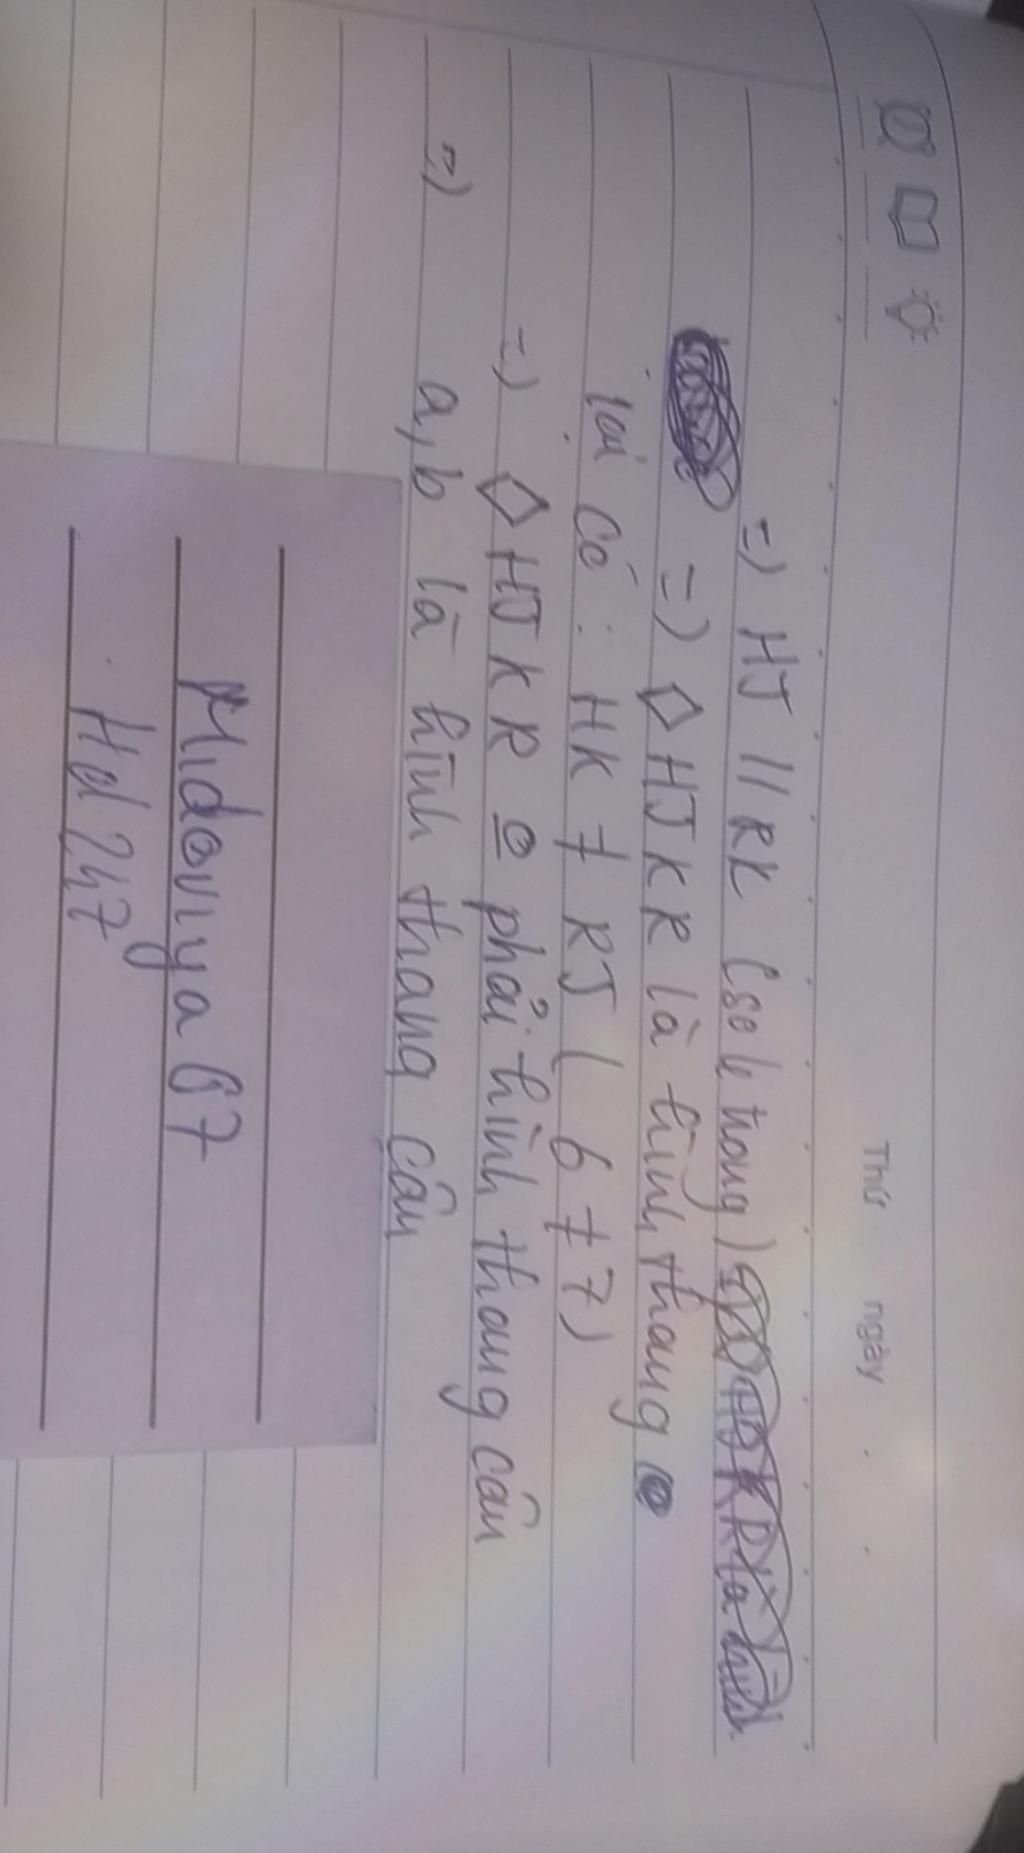 Thứ ngày
=) HJ // RK (so le trong)
=) ◇ HJKR là hình thang
lại có: HK ≠ RJ ( 6 ≠ 7)
=) ◇ HJKR phải hình thang cân
=) a, b là hình thang cân
Midoviya 67
Hd 247